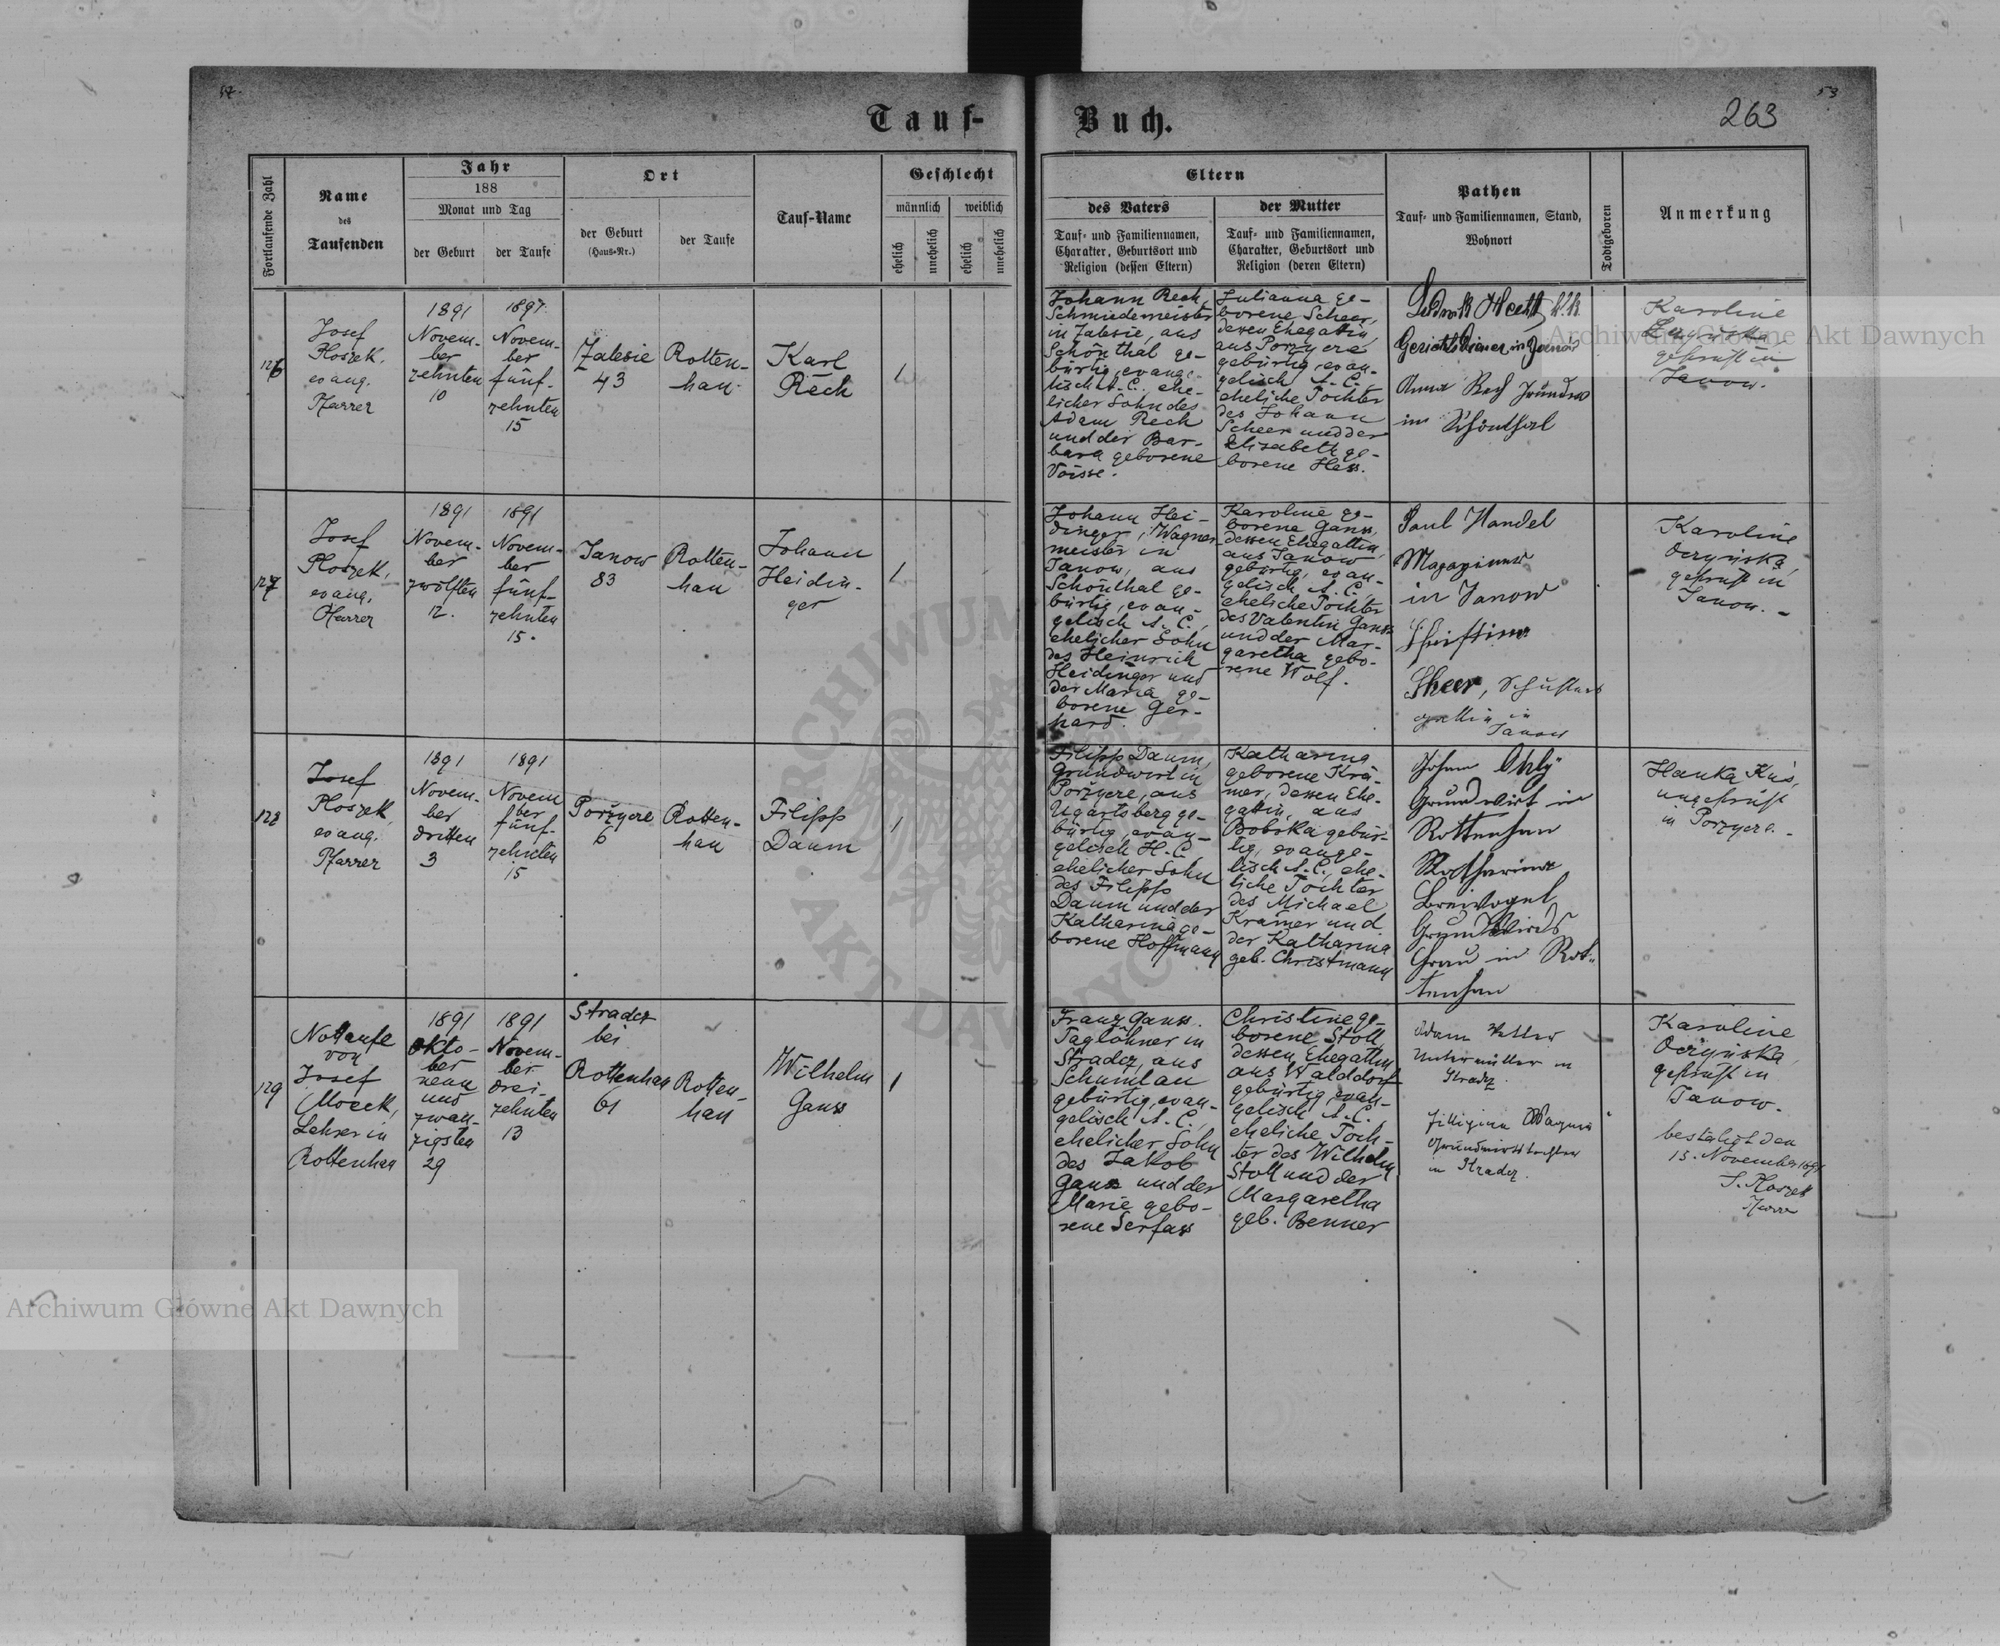 Tauf-Buch.
263
53
Fortlaufende Zahl
Name
des
Taufenden
Jahr
188
Monat und Tag
der Geburt
der Taufe
Ort
der Geburt
(Haus-Nr.)
der Taufe
Tauf-Name
Geschlecht
männlich
weiblich
ehelich
unehelich
ehelich
unehelich
Eltern
des Vaters
Tauf- und Familiennamen,
Charakter, Geburtsort und
Religion (dessen Eltern)
der Mutter
Tauf- und Familiennamen,
Charakter, Geburtsort und
Religion (deren Eltern)
Pathen
Tauf- und Familiennamen, Stand,
Wohnort
Todtgeboren
Anmerkung
126
Josef
Ploszek,
evang.
Pfarrer
1891
Novem-
ber
zehnten
10
1891
Novem-
ber
fünf-
zehnten
15
Zalesie
43
Rotten-
han
Karl
Rech
1
Johann Rech,
Schmiedemeister
in Zalesie, aus
Schönthal ge-
bürtig, evange-
lisch A.C. ehe-
licher Sohn des
Adam Rech
und der Bar-
bara geborene
Julianna ge-
borene Scheer,
dessen Ehegattin
aus Porzyere
gebürtig, evan-
gelisch A.C.,
eheliche Tochter
des Johann
Scheer und der
Elisabeth ge-
borene Hess.
k.k.
Gerichtsdiener in Janów
Anna Rech
in Schönthal
Karoline
geprüft in
Janow.
127
Josef
Ploszek,
evang.
Pfarrer
1891
Novem-
ber
zwölften
12.
1891
Novem-
ber
fünf-
zehnten
15.
Janow
83
Rotten-
han
Johann
Heidin-
ger
1
Johann Hei-
dinger, Wagner-
meister in
Janow, aus
Schönthal ge-
bürtig, evan-
gelisch A.C.,
ehelicher Sohn
des Heinrich
Heidinger und
der Maria ge-
borene Ger-
hard.
Karoline ge-
borene Ganss,
dessen Ehegattin,
aus Janow
gebürtig, evan-
gelisch A.C.,
eheliche Tochter
des Valentin Ganss
und der Mar-
garetha gebo-
rene Wolf.
Paul Handel
in Janow
Christina
Scheer, Schusters
gattin in
Janow
Karoline
Oczyńska,
geprüft in
Janow.
128
Josef
Ploszek
evang.
Pfarrer
1891
Novem-
ber
dritten
3
1891
Novem
ber
fünf-
zehnten
15
Porzyere
6
Rotten-
han
Filipp
Daum
1
Filipp Daum,
Grundwirt in
Porzyere, aus
Ugartsberg ge-
bürtig, evan-
gelisch H.C.
ehelicher Sohn
des Filipp
Daum und der
Katharina ge-
borene Hoffmann
Katharina
geborene Krä-
mer, dessen Ehe-
gattin, aus
Bobrka gebür-
tig, evange-
lisch A.C., ehe-
liche Tochter
des Michael
Kramer und
der Katharina
geb. Christmann
Johann Ohly
Grundwirt in
Rottenhan
Katharina
Breivogel
Grundwirts
Frau in Rot-
tenhan
Hanka Kuś,
ungeprüft
in Porzyere.
129
Nottaufe
von
Josef
Mock,
Lehrer in
Rottenhan
1891
Okto-
ber
neun
und
zwan-
zigsten
29
1891
Novem-
ber
drei-
zehnten
13
Stradez
bei
Rottenhan
61
Rotten-
han
Wilhelm
Ganss
1
Franz Ganss.
Taglöhner in
Stradez, aus
Schumlau
gebürtig, evan-
gelisch A.C.,
ehelicher Sohn
des Jakob
Ganss und der
Marie gebo-
rene Serfass
Christine ge-
borene Stoll
dessen Ehegattin
aus Walddorf
gebürtig, evan-
gelisch A.C.
eheliche Toch-
ter des Wilhelm
Stoll und der
Margaretha
geb. Benner
Adam Vetter
Untermüller in
Stradez.
Filippina Wagner
Grundwirtstochter
in Stradez.
Karoline
Oczyńska,
geprüft in
Janow.
bestätigt den
15. November 1891
J. Ploszek
Pfarrer
Archiwum Główne Akt Dawnych
Archiwum Główne Akt Dawnych
ARCHIWUM
AKT DAWNYCH